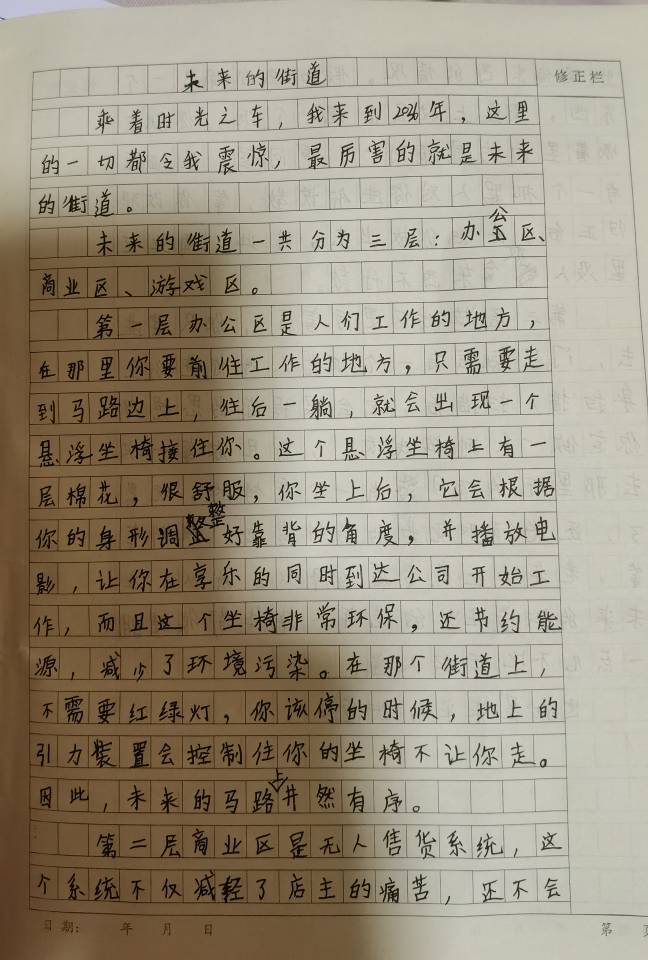 未来的街道
修正栏
乘着时光之车，我来到2036年，这里
的一切都令我震惊，最厉害的就是未来
的街道。
未来的街道一共分为三层：办公区、
商业区、游戏区。
第一层办公区是人们工作的地方，
在那里你要前往工作的地方，只需要走
到马路边上，往后一躺，就会出现一个
悬浮坐椅接住你。这个悬浮坐椅上有一
层棉花，很舒服，你坐上后，它会根据
你的身形调整好靠背的角度，并播放电
影，让你在享乐的同时到达公司开始工
作，而且这个坐椅非常环保，还节约能
源，减少了环境污染。在那个街道上，
不需要红绿灯，你该停的时候，地上的
引力装置会控制住你的坐椅不让你走。
因此，未来的马路上井然有序。
第二层商业区是无人售货系统，这
个系统不仅减轻了店主的痛苦，还不会
日期： 年 月 日
第